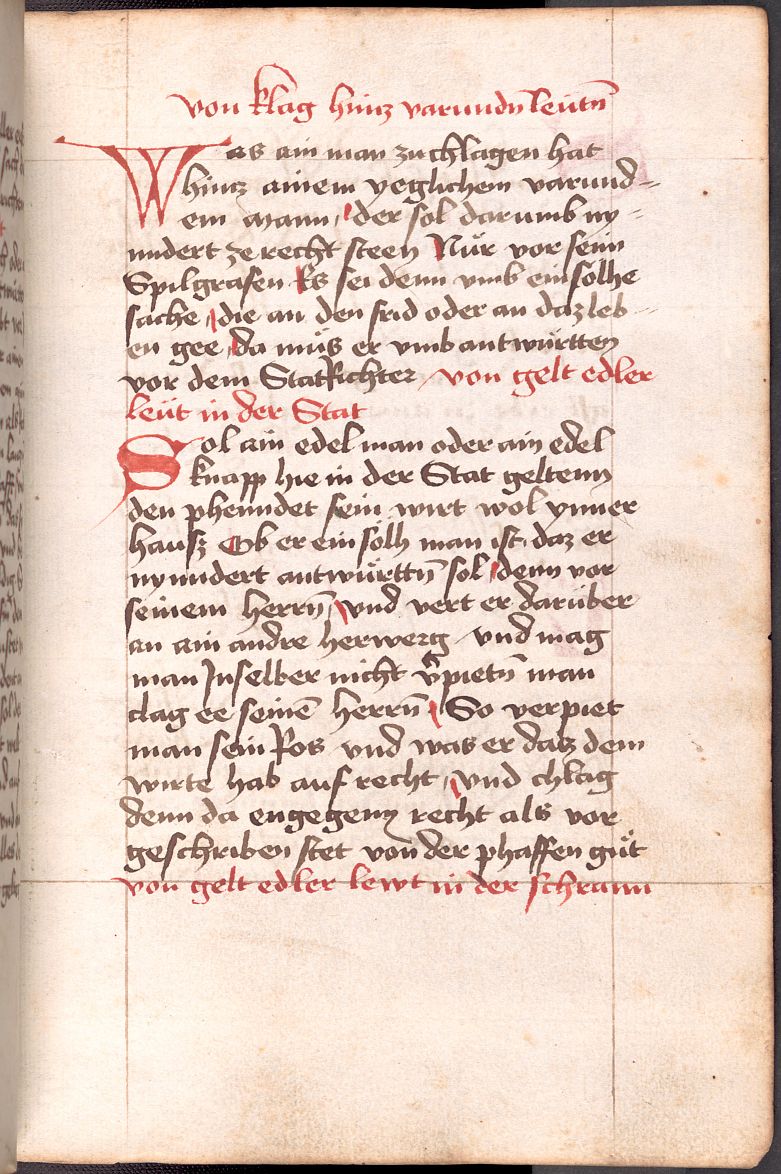 von klag hinz varundn leütn̄
Was ain man zu chlagen hat
hinz ainem yeglichem varund=
em mann / der sol darumb ny=
nndert ze recht steen Nür vor seim
Spilgrafen Es sei denn vmb ein sölhe
sache / die an den frid oder an daz leb=
en gee / da müs er vmb antwürtten
vor dem StatRichter / von gelt edler
leüt in der Stat
Sol ain edel man oder ain edel
knapp hie in der Stat geltenn
den phenndet sein wirt wol ynner
hausz Ob er ein sölh man ist daz er
nynndert antwürttn̄ sol / denn vor
seinem herrn̄ / vnd vert er darüber
an ain andre herwerg / vnd mag
man Jnselber nicht v̄pietn̄ man
clag ee seinē herrn̄ / So verpiet
man sein Ros vnd was er datz dem
wirte hab auf recht / vnd chlag
denn da engegenz recht als vor
geschriben stet von der phaffen güt
von gelt edler lewt in der schrann